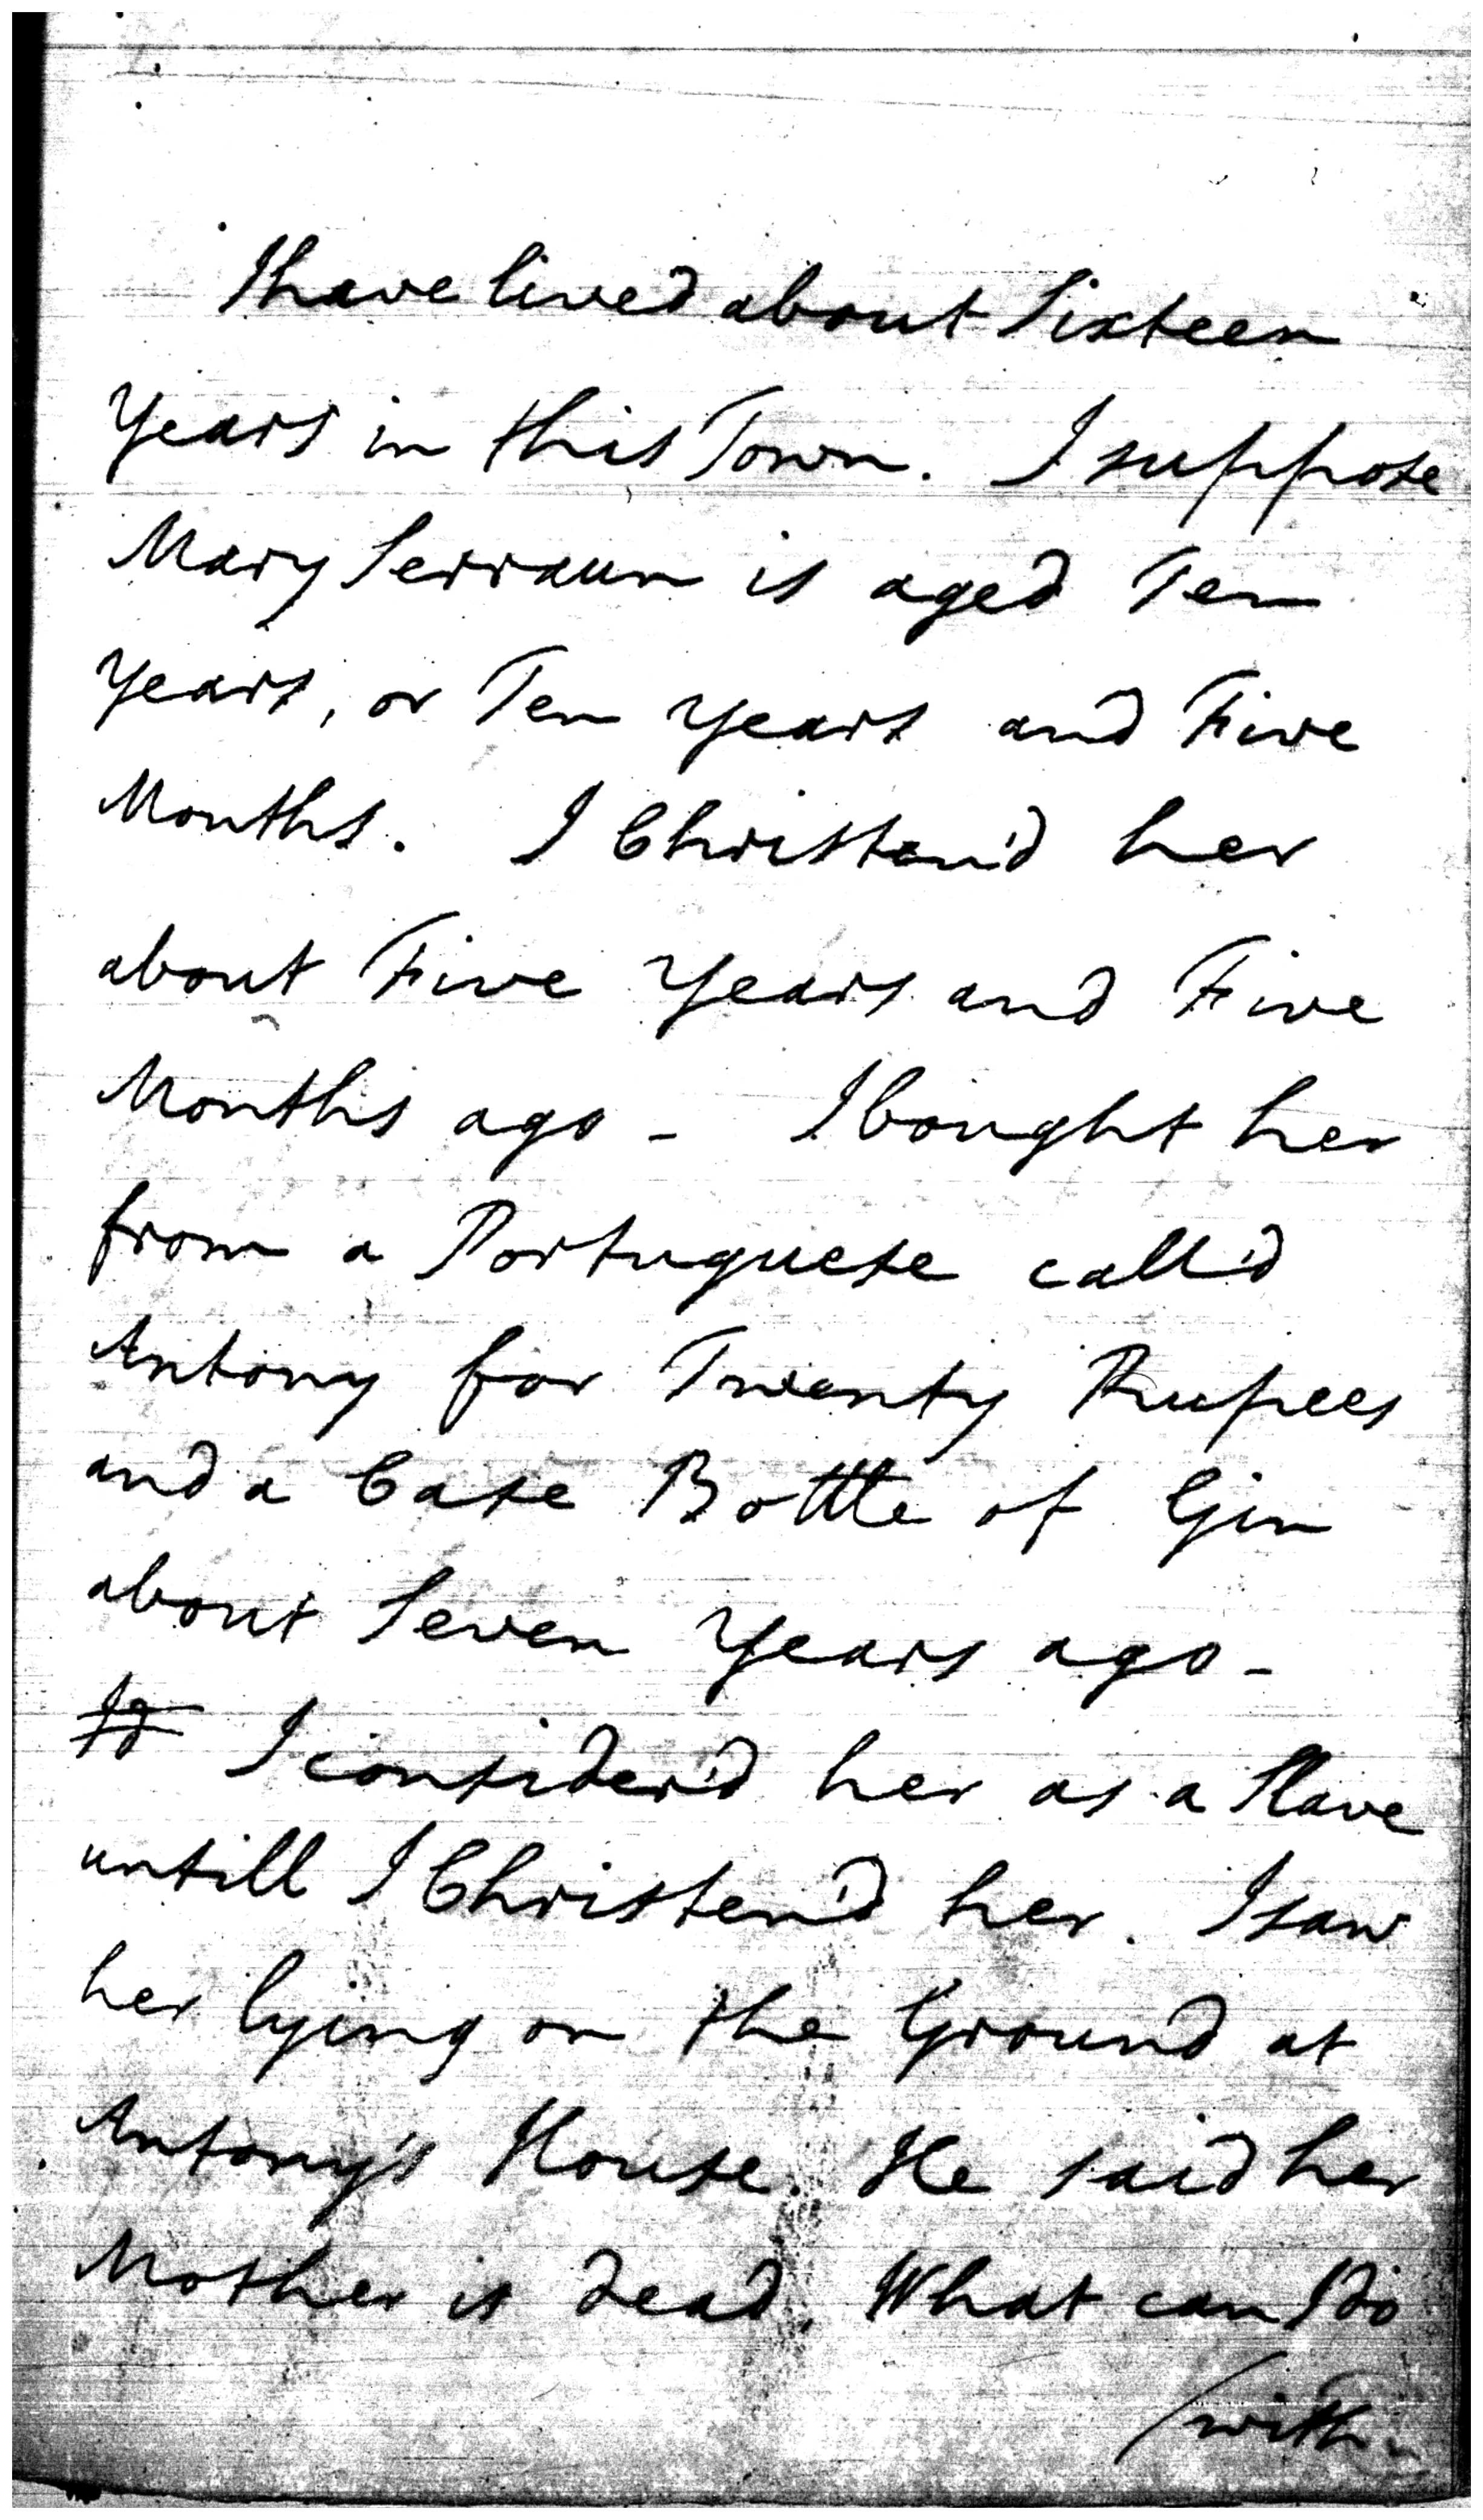 I have lived about Sixteen
Years in this Town. I suppose
Mary Serraun is aged Ten
Years, or Ten Years and Five
Months. I Christen'd her
about Five Years and Five
Months ago - I bought her
from a Portuguese call'd
Antony for Twenty Rupees
and a Case Bottle of Gin
about Seven Years ago -
I consider'd her as a Slave
untill I Christen'd her. I saw
her lying on the Ground at
Antony's House. He said her
Mother is dead. What can I do
/with